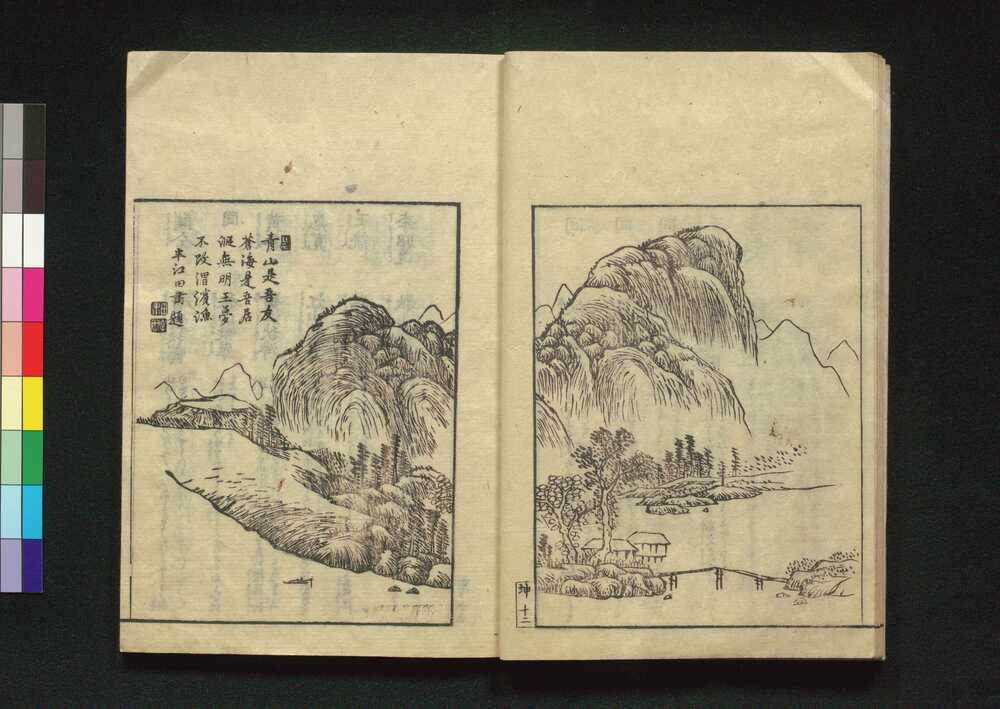 青山是吾友
蒼海是吾居
涎無明王夢
不改渭濱漁
半江田粛題
坤 十二